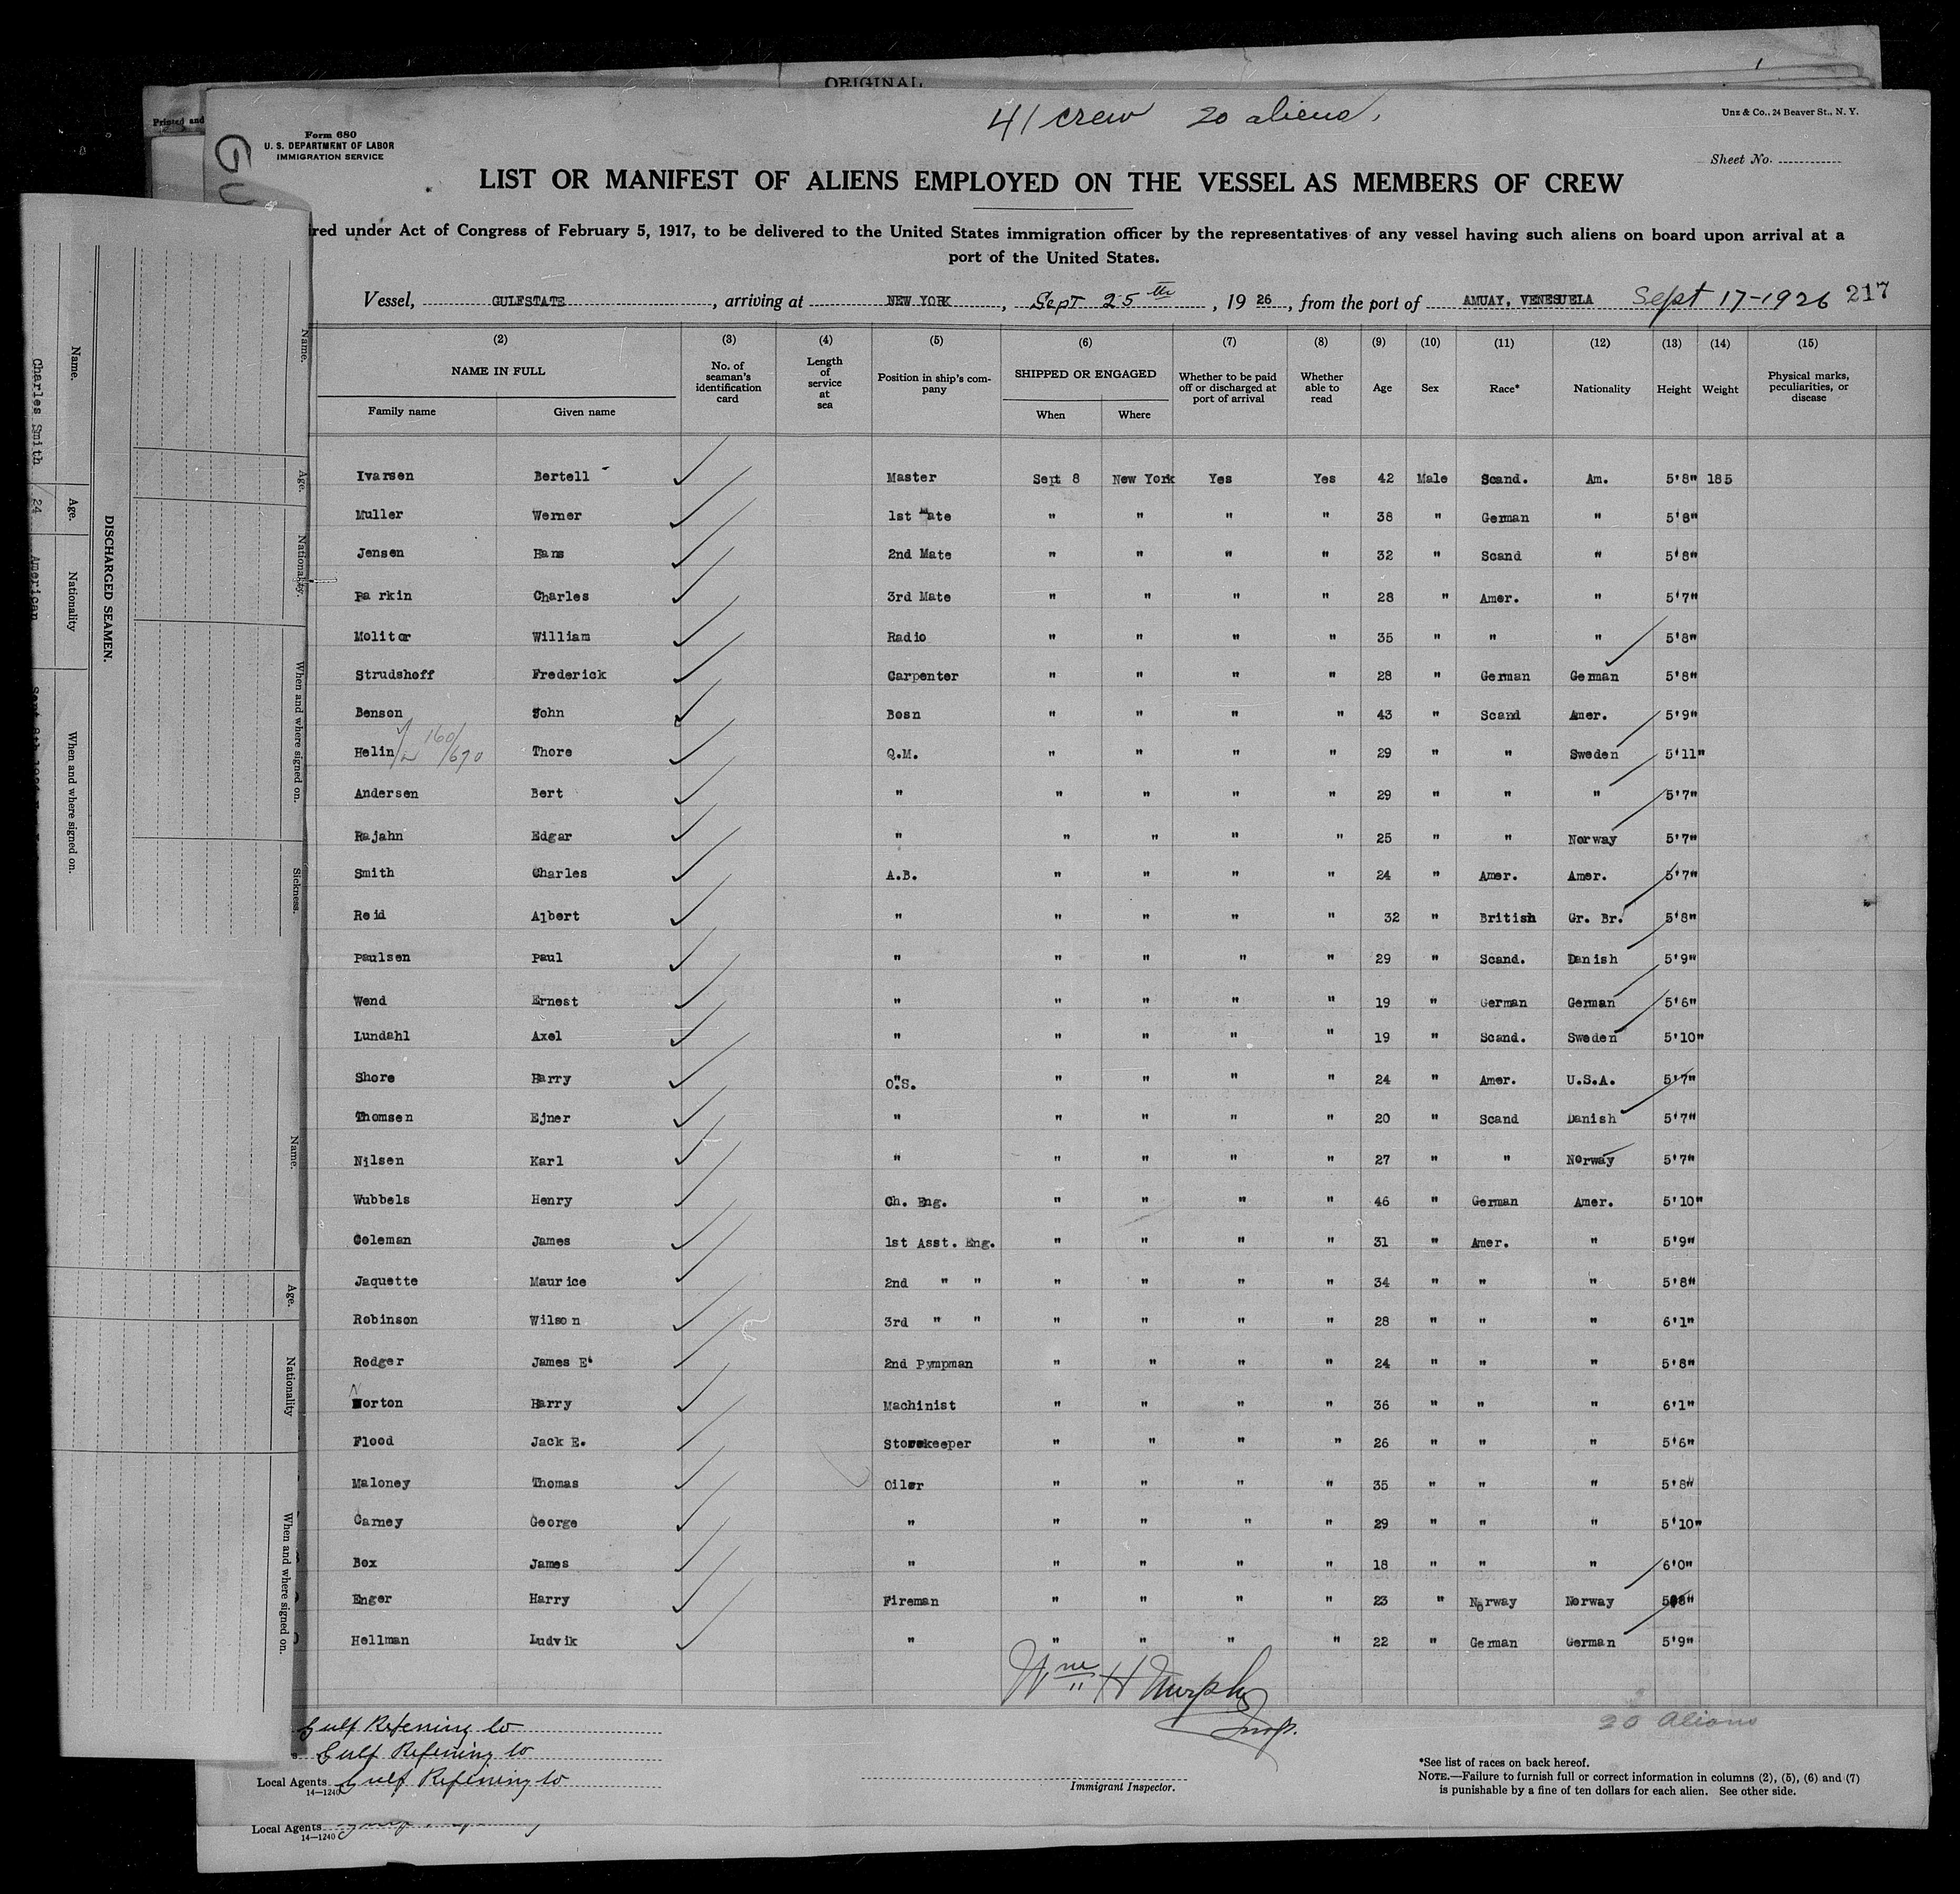 ORIGINAL
Printed and
41 crew 20 aliens,
Unz & Co., 24 Beaver St., N. Y.
Form 680
U. S. DEPARTMENT OF LABOR
IMMIGRATION SERVICE
GU
Sheet No.
LIST OR MANIFEST OF ALIENS EMPLOYED ON THE VESSEL AS MEMBERS OF CREW
ired under Act of Congress of February 5, 1917, to be delivered to the United States immigration officer by the representatives of any vessel having such aliens on board upon arrival at a
port of the United States.
Vessel, GULFSTATE, arriving at NEW YORK, Sept 25th, 1926, from the port of AMUAY, VENESUELA Sept 17-1926 217
(2) (3) (4) (5) (6) (7) (8) (9) (10) (11) (12) (13) (14) (15)
NAME IN FULL No. of seaman's identification card Length of service at sea Position in ship's company SHIPPED OR ENGAGED Whether to be paid off or discharged at port of arrival Whether able to read Age Sex Race* Nationality Height Weight Physical marks, peculiarities, or disease
Family name Given name When Where
Ivarsen Bertell Master Sept 8 New York Yes Yes 42 Male Scand. Am. 5'8" 185
Muller Werner 1st Mate " " " " 38 " German " 5'8"
Jensen Hans 2nd Mate " " " " 32 " Scand " 5'8"
Parkin Charles 3rd Mate " " " " 28 " Amer. " 5'7"
Molitor William Radio " " " " 35 " " " 5'8"
Strudshoff Frederick Carpenter " " " " 28 " German German 5'8"
Benson John Bosn " " " " 43 " Scand Amer. 5'9"
Helin 160/670 Thore Q.M. " " " " 29 " " Sweden 5'11"
Andersen Bert " " " " " 29 " " " 5'7"
Rajahn Edgar " " " " " 25 " " Norway 5'7"
Smith Charles A.B. " " " " 24 " Amer. Amer. 5'7"
Reid Albert " " " " " 32 " British Gr. Br. 5'8"
Paulsen Paul " " " " " 29 " Scand. Danish 5'9"
Wend Ernest " " " " " 19 " German German 5'6"
Lundahl Axel " " " " " 19 " Scand. Sweden 5'10"
Shore Harry O.S. " " " " 24 " Amer. U.S.A. 5'7"
Thomsen Ejner " " " " " 20 " Scand Danish 5'7"
Nilsen Karl " " " " " 27 " " Norway 5'7"
Wubbels Henry Ch. Eng. " " " " 46 " German Amer. 5'10"
Coleman James 1st Asst. Eng. " " " " 31 " Amer. " 5'9"
Jaquette Maurice 2nd " " " " " " 34 " " " 5'8"
Robinson Wilson 3rd " " " " " " 28 " " " 6'1"
Rodger James E. 2nd Pympman " " " " 24 " " " 5'8"
Norton Harry Machinist " " " " 36 " " " 6'1"
Flood Jack E. Storekeeper " " " " 26 " " " 5'6"
Maloney Thomas Oiler " " " " 35 " " " 5'8"
Carney George " " " " " 29 " " " 5'10"
Box James " " " " " 18 " " " 6'0"
Enger Harry Fireman " " " " 23 " Norway Norway 5'8"
Hellman Ludvik " " " " " 22 " German German 5'9"
Wm H Murphy
Insp.
20 Aliens
Gulf Refining Co
Gulf Refining Co
Local Agents Gulf Refining Co
14—1240
Immigrant Inspector.
*See list of races on back hereof.
NOTE.—Failure to furnish full or correct information in columns (2), (5), (6) and (7)
is punishable by a fine of ten dollars for each alien. See other side.
Local Agents
14—1240
DISCHARGED SEAMEN.
Name. Age. Nationality When and where signed on.
Charles Smith 24 American
Name. Age. Nationality. When and where signed on. Sickness.
Name. Age. Nationality When and where signed on.